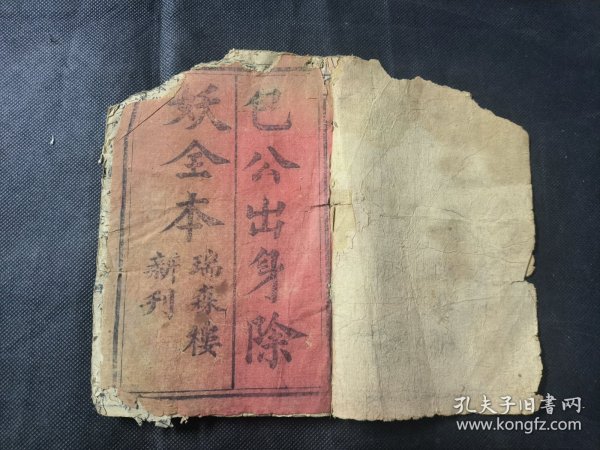 包公出身除
妖全本
瑞森樓
新刋
孔夫子旧書网
www.kongfz.com